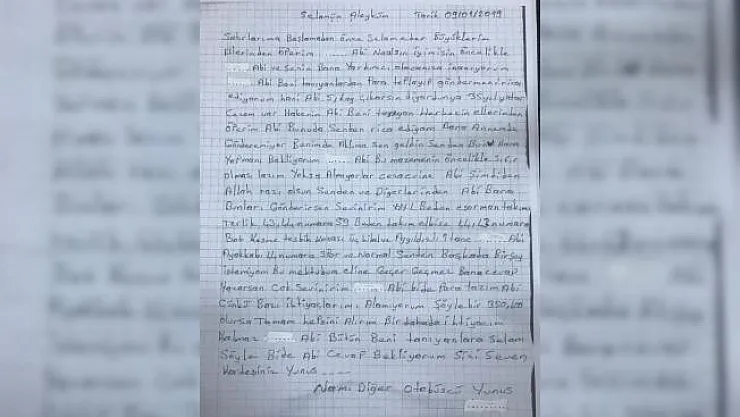 Selamün Aleyküm Tarih 09/01/2019
Satırlarıma Başlamadan önce Selameder Büyüklerim
Ellerinden öperim ...... Abi Nasılsın iyimisin öncelikle
Abi ve Senin Bana Yardımcı olacağına inanıyorum
Abi Beni tanıyanlardan Para toplayıp göndermenizi rica
ediyorum hani Abi
Cezam var Haberin Abi Beni Herkesin ellerinden
öperim Abi Bunuda Senden rica ediyom Bana Annemde
Gönderemiyor Benimde Aklıma sen geldin Senden Bunu Bana
Yapmanı Bekliyorum ..... Abi Bu malzemenin öncelikle Sıfır
olması lazım Yoksa Almıyorlar cezaevine Abi Şimdiden
Allah razı olsun Senden ve Diğerlerinden Abi Bana
Bunları Gönderirsen Sevinirim XXL Beden eşorman takımı
terlik 43,44 numara 59 Beden takım elbise 44,43 numara
Bot Kesme tesbih 1 tane ...... Abi
Ayakkabı 44 numara Spor ve Normal Senden Başkada Birşey
istemiyom Bu mektubum eline Geçer Geçmez Bana cevap
Yazarsan Çok Sevinirim Abi bide Para lazım Abi
Çünkü Bazı ihtiyaçlarımı Alamıyorum Şöyle bir 350,400
olursa Tamam hepsini Alırım Bir dahada ihtiyacım
Kalmaz ...... Abi Bütün Beni tanıyanlara Selam
Söyle Bide Abi Cevap Bekliyorum Sizi Seven
Kardeşiniz Yunus ....
Namı Diğer Otobüscü Yunus